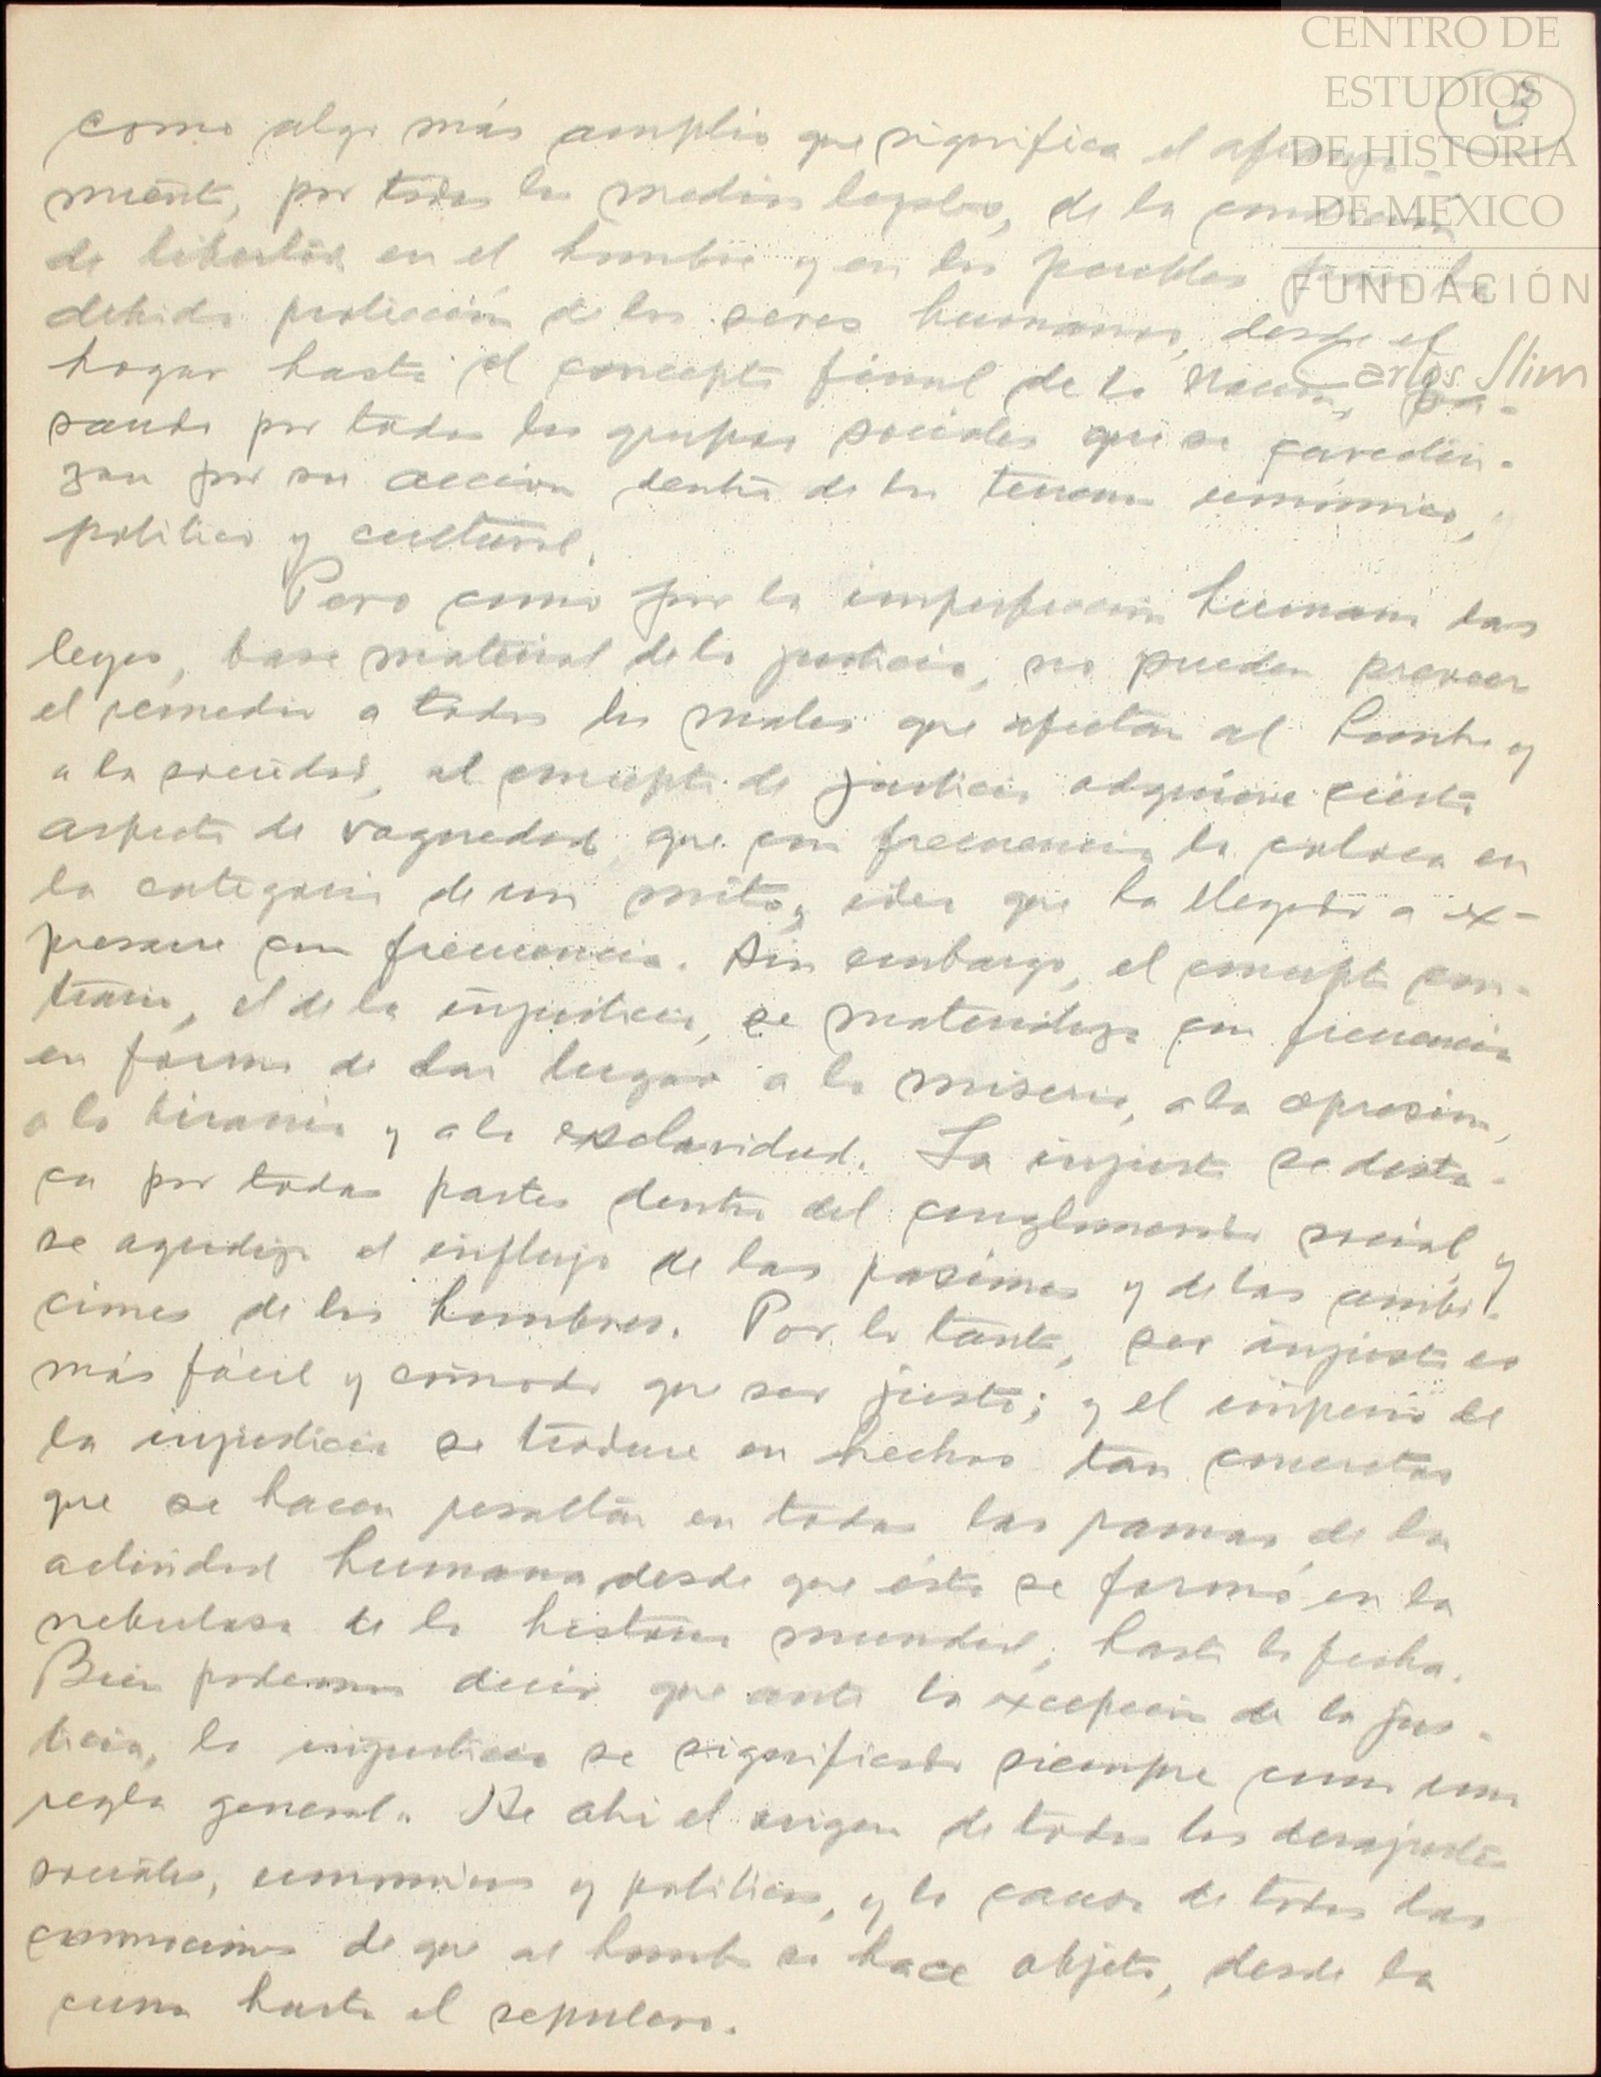 CENTRO DE
ESTUDIOS
DE HISTORIA
DE MÉXICO
FUNDACIÓN
Carlos Slim
3
como algo más amplio que significa el
miento, por todos los medios legales, de la condición
de libertad en el hombre y en los pueblos para la
debida protección de los seres humanos, desde el
hogar hasta el concepto final de la Nación, pa-
sando por todos los grupos sociales que se
zan por su acción dentro de los terrenos económico,
político y cultural.
Pero como por la imperfección humana las
leyes, base material de la justicia, no pueden proveer
el remedio a todos los males que afectan al hombre y
a la sociedad, el concepto de justicia adquiere cierto
aspecto de vaguedad, que con frecuencia la coloca en
la categoría de un mito, idea que ha llegado a ex-
presarse con frecuencia. Sin embargo, el concepto con-
trario, el de la injusticia, se materializa con frecuencia
en forma de dar lugar a la miseria, a la opresión,
a la tiranía y a la esclavitud. Lo injusto se desta-
ca por todas partes dentro del conglomerado social y
se agudiza al influjo de las pasiones y de las ambi-
ciones de los hombres. Por lo tanto, ser injusto es
más fácil y cómodo que ser justo; y el imperio de
la injusticia se traduce en hechos tan concretos
que se hacen resaltar en todas las ramas de la
actividad humana desde que ésta se formó en la
nebulosa de la historia mundial, hasta la fecha.
Bien podemos decir que ante la excepción de la jus-
ticia, la injusticia se significado siempre como una
regla general. De ahí el origen de todos los desajustes
sociales, económicos y políticos, y la causa de todas las
conmociones de que al hombre se hace objeto, desde la
cuna hasta el sepulcro.